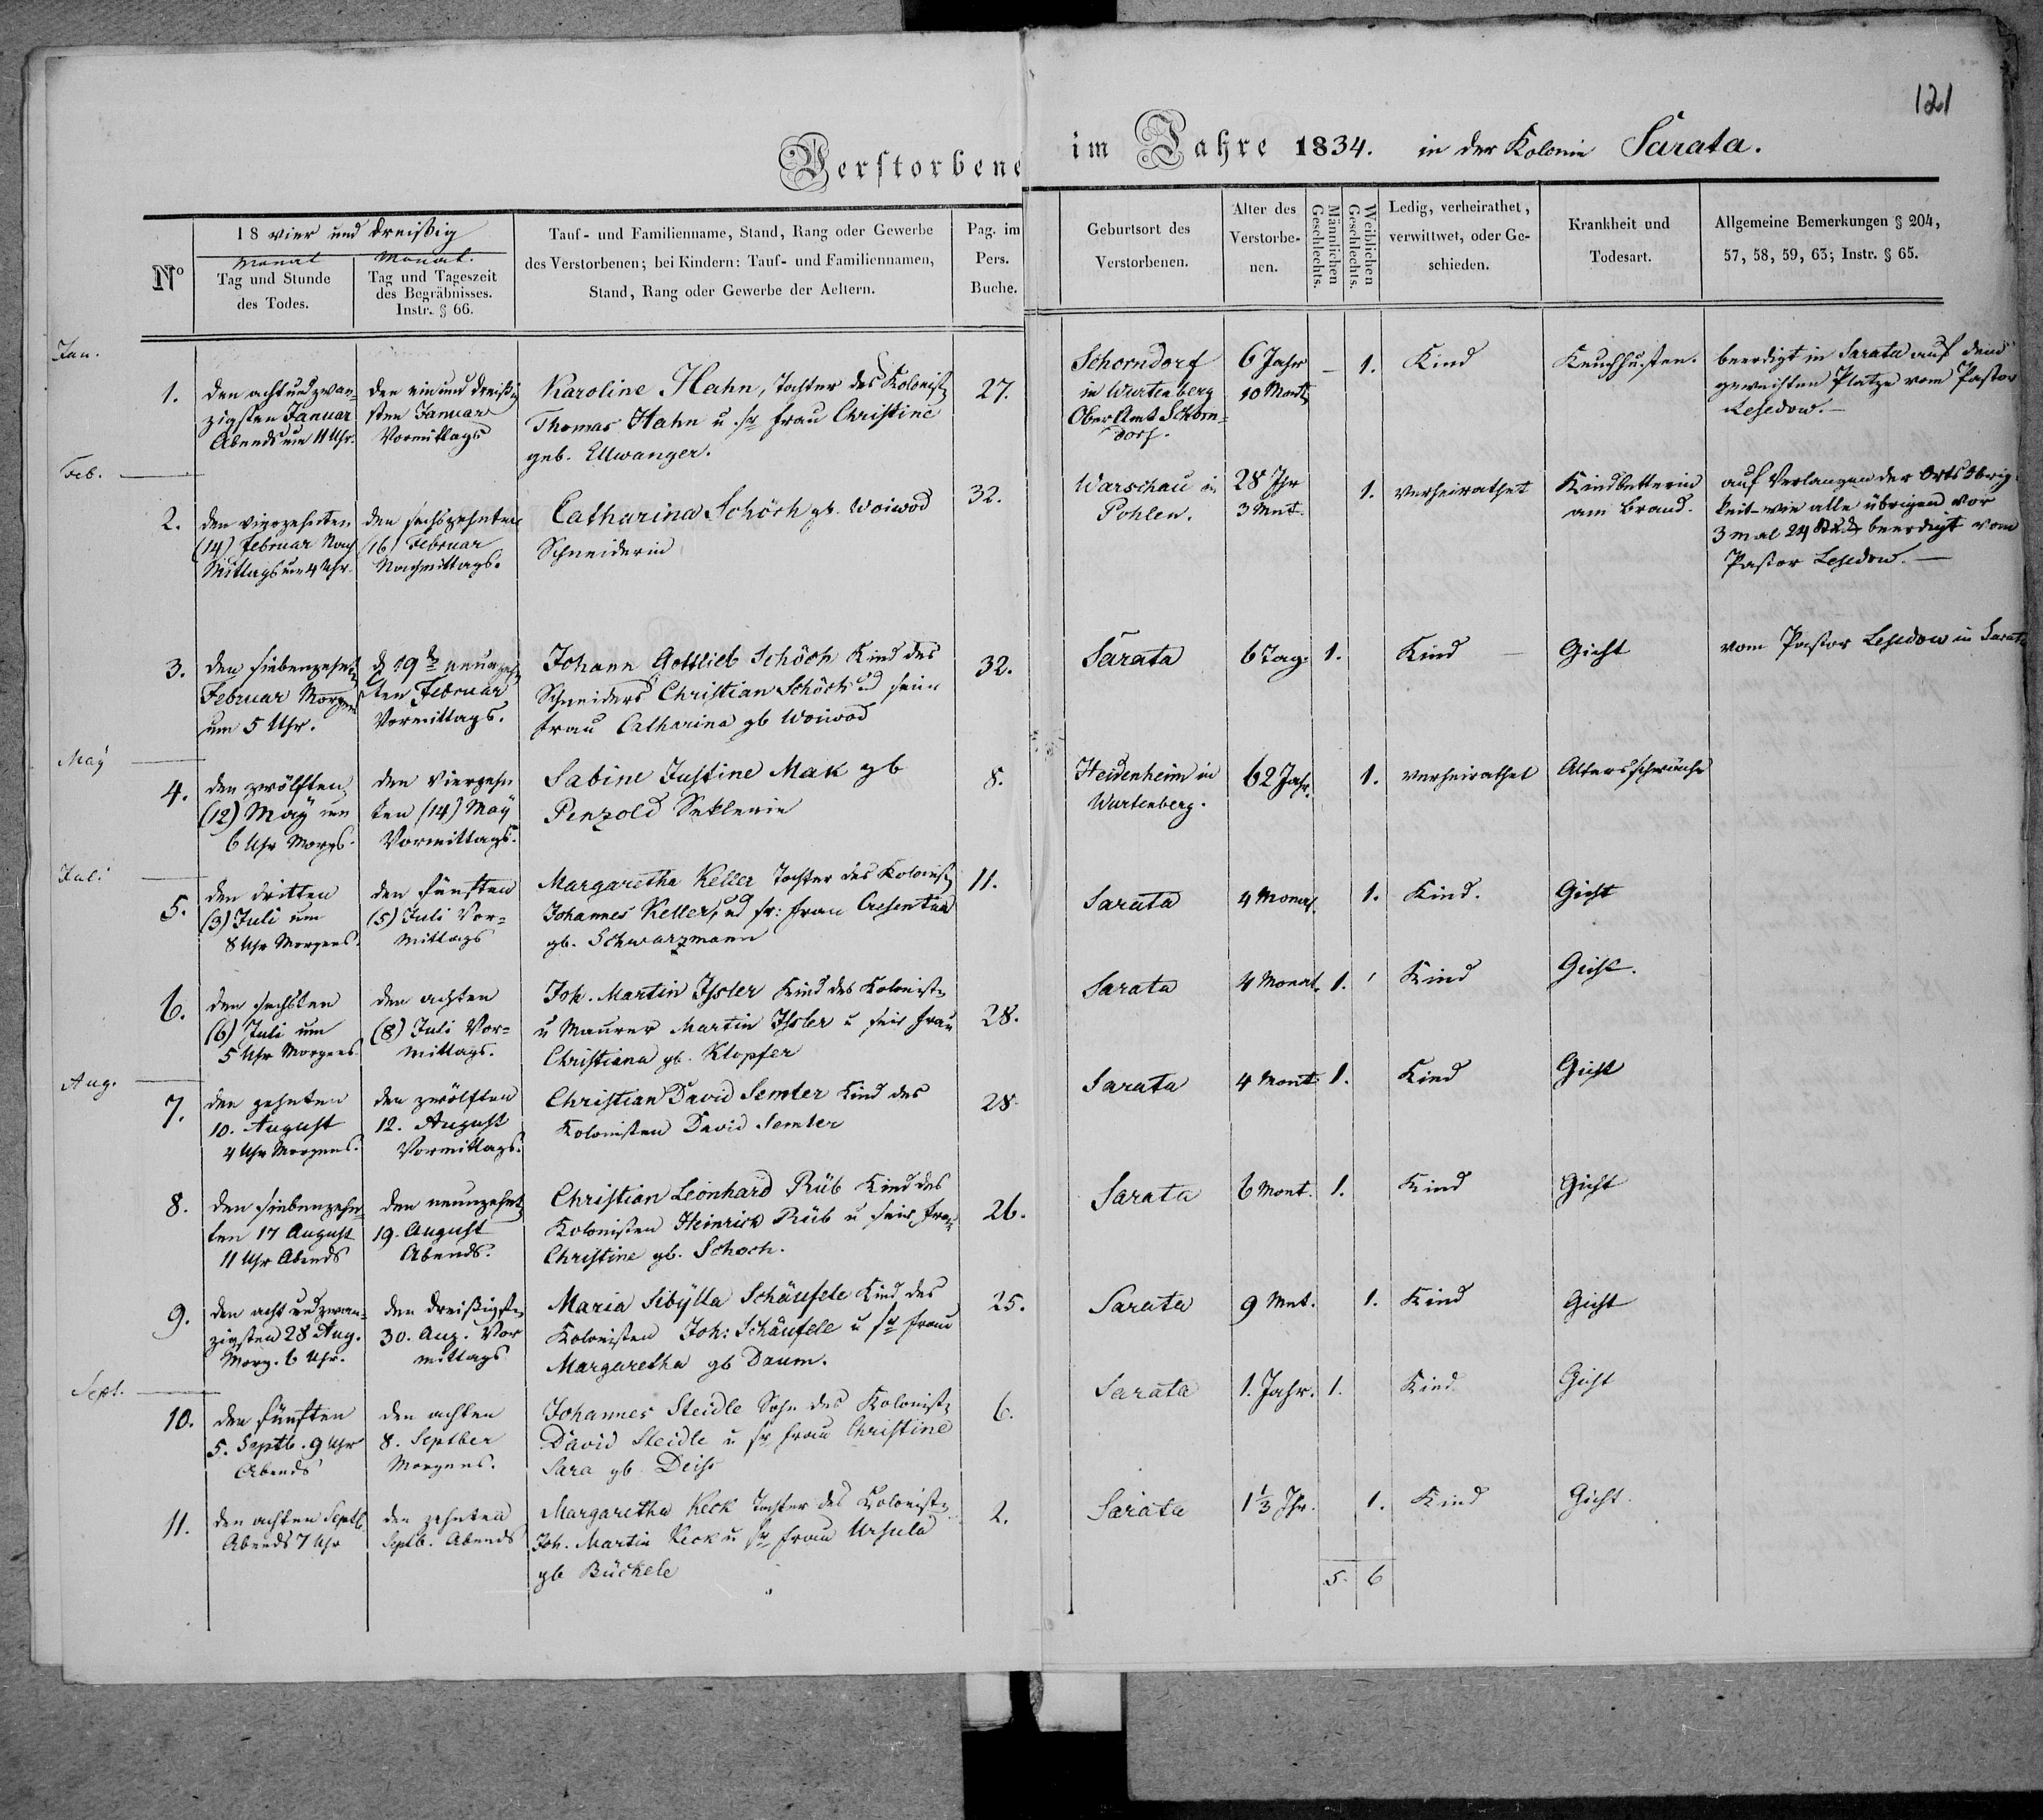 121
Verstorbene im Jahre 1834. in der Kolonie Sarata.
No
18 vier und dreißig
Monat
Tag und Stunde
des Todes.
Monat.
Tag und Tageszeit
des Begräbnisses.
Instr. § 66.
Tauf- und Familienname, Stand, Rang oder Gewerbe
des Verstorbenen; bei Kindern: Tauf- und Familiennamen,
Stand, Rang oder Gewerbe der Aeltern.
Pag. im
Pers.
Buche.
Geburtsort des
Verstorbenen.
Alter des
Verstorbe-
nen.
Männlichen
Geschlechts.
Weiblichen
Geschlechts.
Ledig, verheirathet,
verwittwet, oder Ge-
schieden.
Krankheit und
Todesart.
Allgemeine Bemerkungen § 204,
57, 58, 59, 63; Instr. § 65.
Jan.
1.
den achtundzwan-
zigsten Januar
Abends um 11 Uhr.
den ein und dreißig
sten Januar
Vormittags
Karoline Hahn, Tochter des Kolonist
Thomas Hahn u. sr Frau Christine
geb. Ellwanger.
27.
Schorndorf
in Würtenberg
OberAmt Schorn-
dorf.
6 Jahr
10 Mont
–
1.
Kind
Keuchhusten.
beerdigt in Sarata auf dem
geweihten Platze vom Pastor
Lesedow. –
Feb.
2.
den vierzehnten
(14) Februar Nach
Mittags um 4 Uhr.
den sechszehnten
(16) Februar
Nachmittags.
Catharina Schöch gb. Woiwod
Schneiderin
32.
Warschau in
Pohlen.
28 Jhr
3 Mnt.
1.
verheirathet
Kindbetterin
am Brand.
auf Verlangen der OrtsObrig-
keit – wie alle übrigen vor
3 mal 24 Std beerdigt vom
Pastor Lesedow. –
3.
den siebenzehnt
Februar Morgens
um 5 Uhr.
d 19 neunzeh
ten Februar
Vormittags.
Johann Gottlieb Schöch Kind des
Schneiders Christian Schöch ud sein
Frau Catharina gb Woiwod
32.
Sarata
6 Tag.
1.
Kind
Gicht
vom Pastor Lesedow in Sarata
May
4.
den zwölften
(12) May um
6 Uhr Morgs.
den vierzehn
ten (14) May
Vormittags.
Sabine Justine Mak gb
Penzold Seklerin
8.
Heidenheim in
Würtenberg.
62 Jahr.
1.
verheirathet
Altersschwäche
Juli
5.
den dritten
(3) Juli um
8 Uhr Morgens.
den fünften
(5) Juli Vor-
mittags
Margaretha Keller Tochter des Kolonist
Johannes Keller, ud sr: Frau Cresentia
gb. Schwarzmann
11.
Sarata
4 Monat.
1.
Kind.
Gicht
6.
den sechsten
(6) Juli um
5 Uhr Morgens
den achten
(8) Juli Vor-
mittags.
Joh. Martin Issler Kind des Kolonist
u Maurer Martin Issler u seir Frau
Christiana gb. Klopfer
28.
Sarata
4 Monat.
1.
Kind
Gicht.
Aug.
7.
den zehnten
10. August
4 Uhr Morgens.
den zwölften
12. August
Vormittags.
Christian David Semler Kind des
Kolonisten David Semler
28
Sarata
4 Mont
1.
Kind
Gicht
8.
den siebenzehn-
ten 17 August
11 Uhr Abends
den neunzehnt
19. August
Abends.
Christian Leonhard Rüb Kind des
Kolonisten Heinrich Rüb u seir Frau
Christine gb. Schoch.
26.
Sarata
6 Mont.
1.
Kind
Gicht
9.
den acht und zwan-
zigsten 28 Aug.
Morg. 6 Uhr.
den dreißigsten
30. Aug. Vor
mittags
Maria Sibylla Schäufele Kind des
Kolonisten Joh: Schäufele u sr Frau
Margaretha gb Daum.
25.
Sarata
9 Mnt.
1.
Kind
Gicht
Sept.
10.
den fünften
5. Septb. 9 Uhr
Abends
den achten
8. Septber
Morgens.
Johannes Steidle Sohn des Kolonist
David Steidle u sr Frau Christine
Sara gb. Deiss
6.
Sarata
1. Jahr.
1.
Kind
Gicht
11.
den achten Septb.
Abends 7 Uhr
den zehnten
Septb. Abends
Margaretha Keck Tochter des Kolonist
Joh. Martin Keck u sr Frau Ursula
gb Bückele
2.
Sarata
1⅓ Jhr.
1.
Kind
Gicht.
5.
6